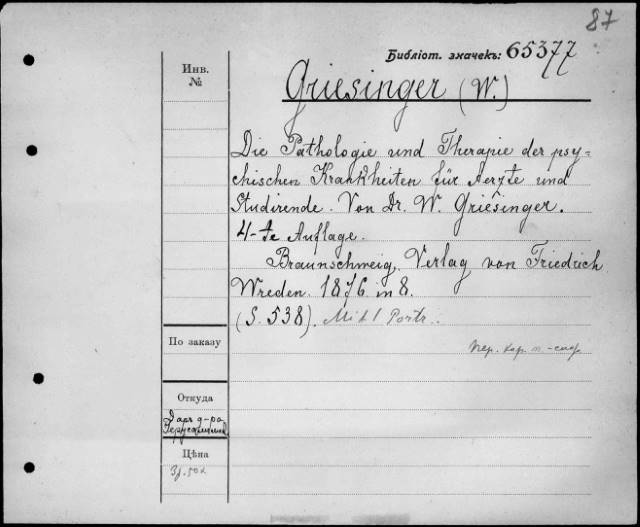 87
Библіот. значекъ: 65377
Инв.
№
Griesinger (W.)
Die Pathologie und Therapie der psy-
chischen Krankheiten für Aerzte und
Studirende. Von Dr. W. Griesinger.
4-te Auflage.
Braunschweig. Verlag von Friedrich
Wreden. 1876. in 8.
(S. 538). Mit 1 Portr.
По заказу
Откуда
Даръ д-ра
Цѣна
3р. 50к